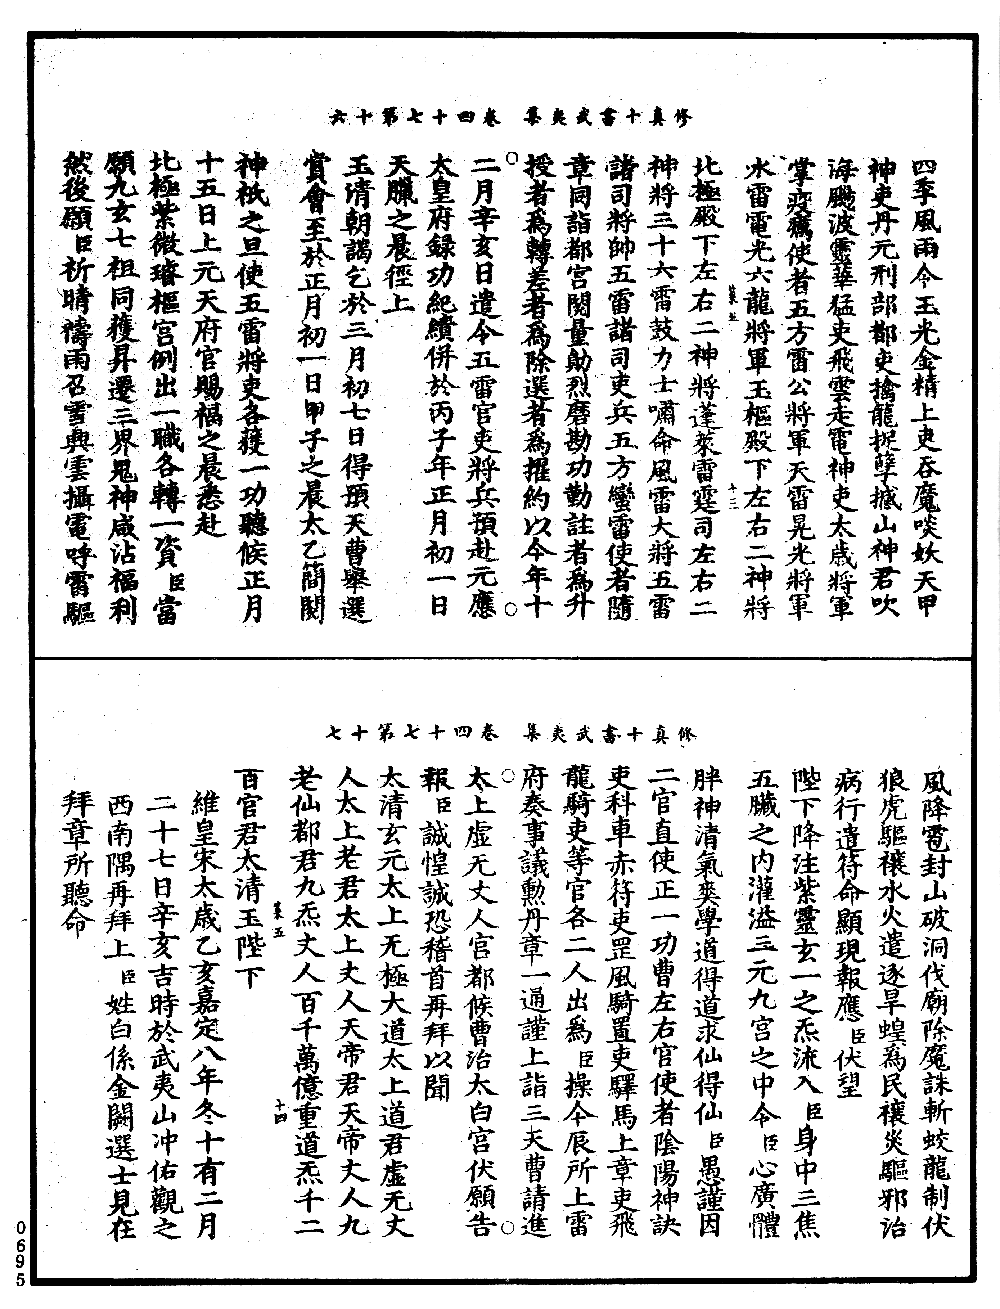 修真十書武夷集卷四十七第十六
四季風雨令玉光金精上吏吞魔啖妖天甲
神吏丹元刑部都吏擒龍捉孽撼山神君吹
海颺波靈華猛吏飛雲走電神吏太歲將軍
掌疫癘使者五方雷公將軍天雷晃光將軍
水雷電光六龍將軍玉樞殿下左右二神將
北極殿下左右二神將蓬萊雷霆司左右二
神將三十六雷鼓力士嘯命風雷大將五雷
諸司將帥五雷諸司吏兵五方蠻雷使者隨
章同詣都宮閱量勛烈磨勘功勤註者為升
授者為轉差者為除選者為擢約以今年十
二月辛亥日遣今五雷官吏將兵預赴元應
太皇府録功紀績併於丙子年正月初一日
天臘之晨徑上
玉清朝謁乞於三月初七日得預天曹舉選
賞會至於正月初一日甲子之晨太乙簡閱
神祇之旦使五雷將吏各獲一功聽候正月
十五日上元天府官賜福之晨悉赴
北極紫微璿樞宮例出一職各轉一資臣當
願九玄七祖同獲昇遷三界鬼神咸沾福利
然後願臣祈晴禱雨召雪興雲攝電呼雷驅
十三
修真十書武夷集卷四十七第十七
風降雹封山破洞伐廟除魔誅斬蛟龍制伏
狼虎驅禳水火遣逐旱蝗為民禳災驅邪治
病行遣符命顯現報應臣伏望
陛下降注紫靈玄一之炁流入臣身中三焦
五臟之内灌溢三元九宮之中令臣心廣體
胖神清氣爽學道得道求仙得仙臣愚謹因
二官直使正一功曹左右官使者陰陽神訣
吏科車赤符吏罡風騎置吏驛馬上章吏飛
龍騎吏等官各二人出為臣操今辰所上雷
府奏事議勳丹章一通謹上詣三天曹請進
太上虛无丈人宮都候曹治太白宮伏願告
報臣誠惶誠恐稽首再拜以聞
太清玄元太上无極大道太上道君虛无丈
人太上老君太上丈人天帝君天帝丈人九
老仙都君九炁丈人百千萬億重道炁千二
百官君太清玉陛下
維皇宋太歲乙亥嘉定八年冬十有二月
二十七日辛亥吉時於武夷山冲佑觀之
西南隅再拜上臣姓白係金闕選士見在
拜章所聽命
十四
0695